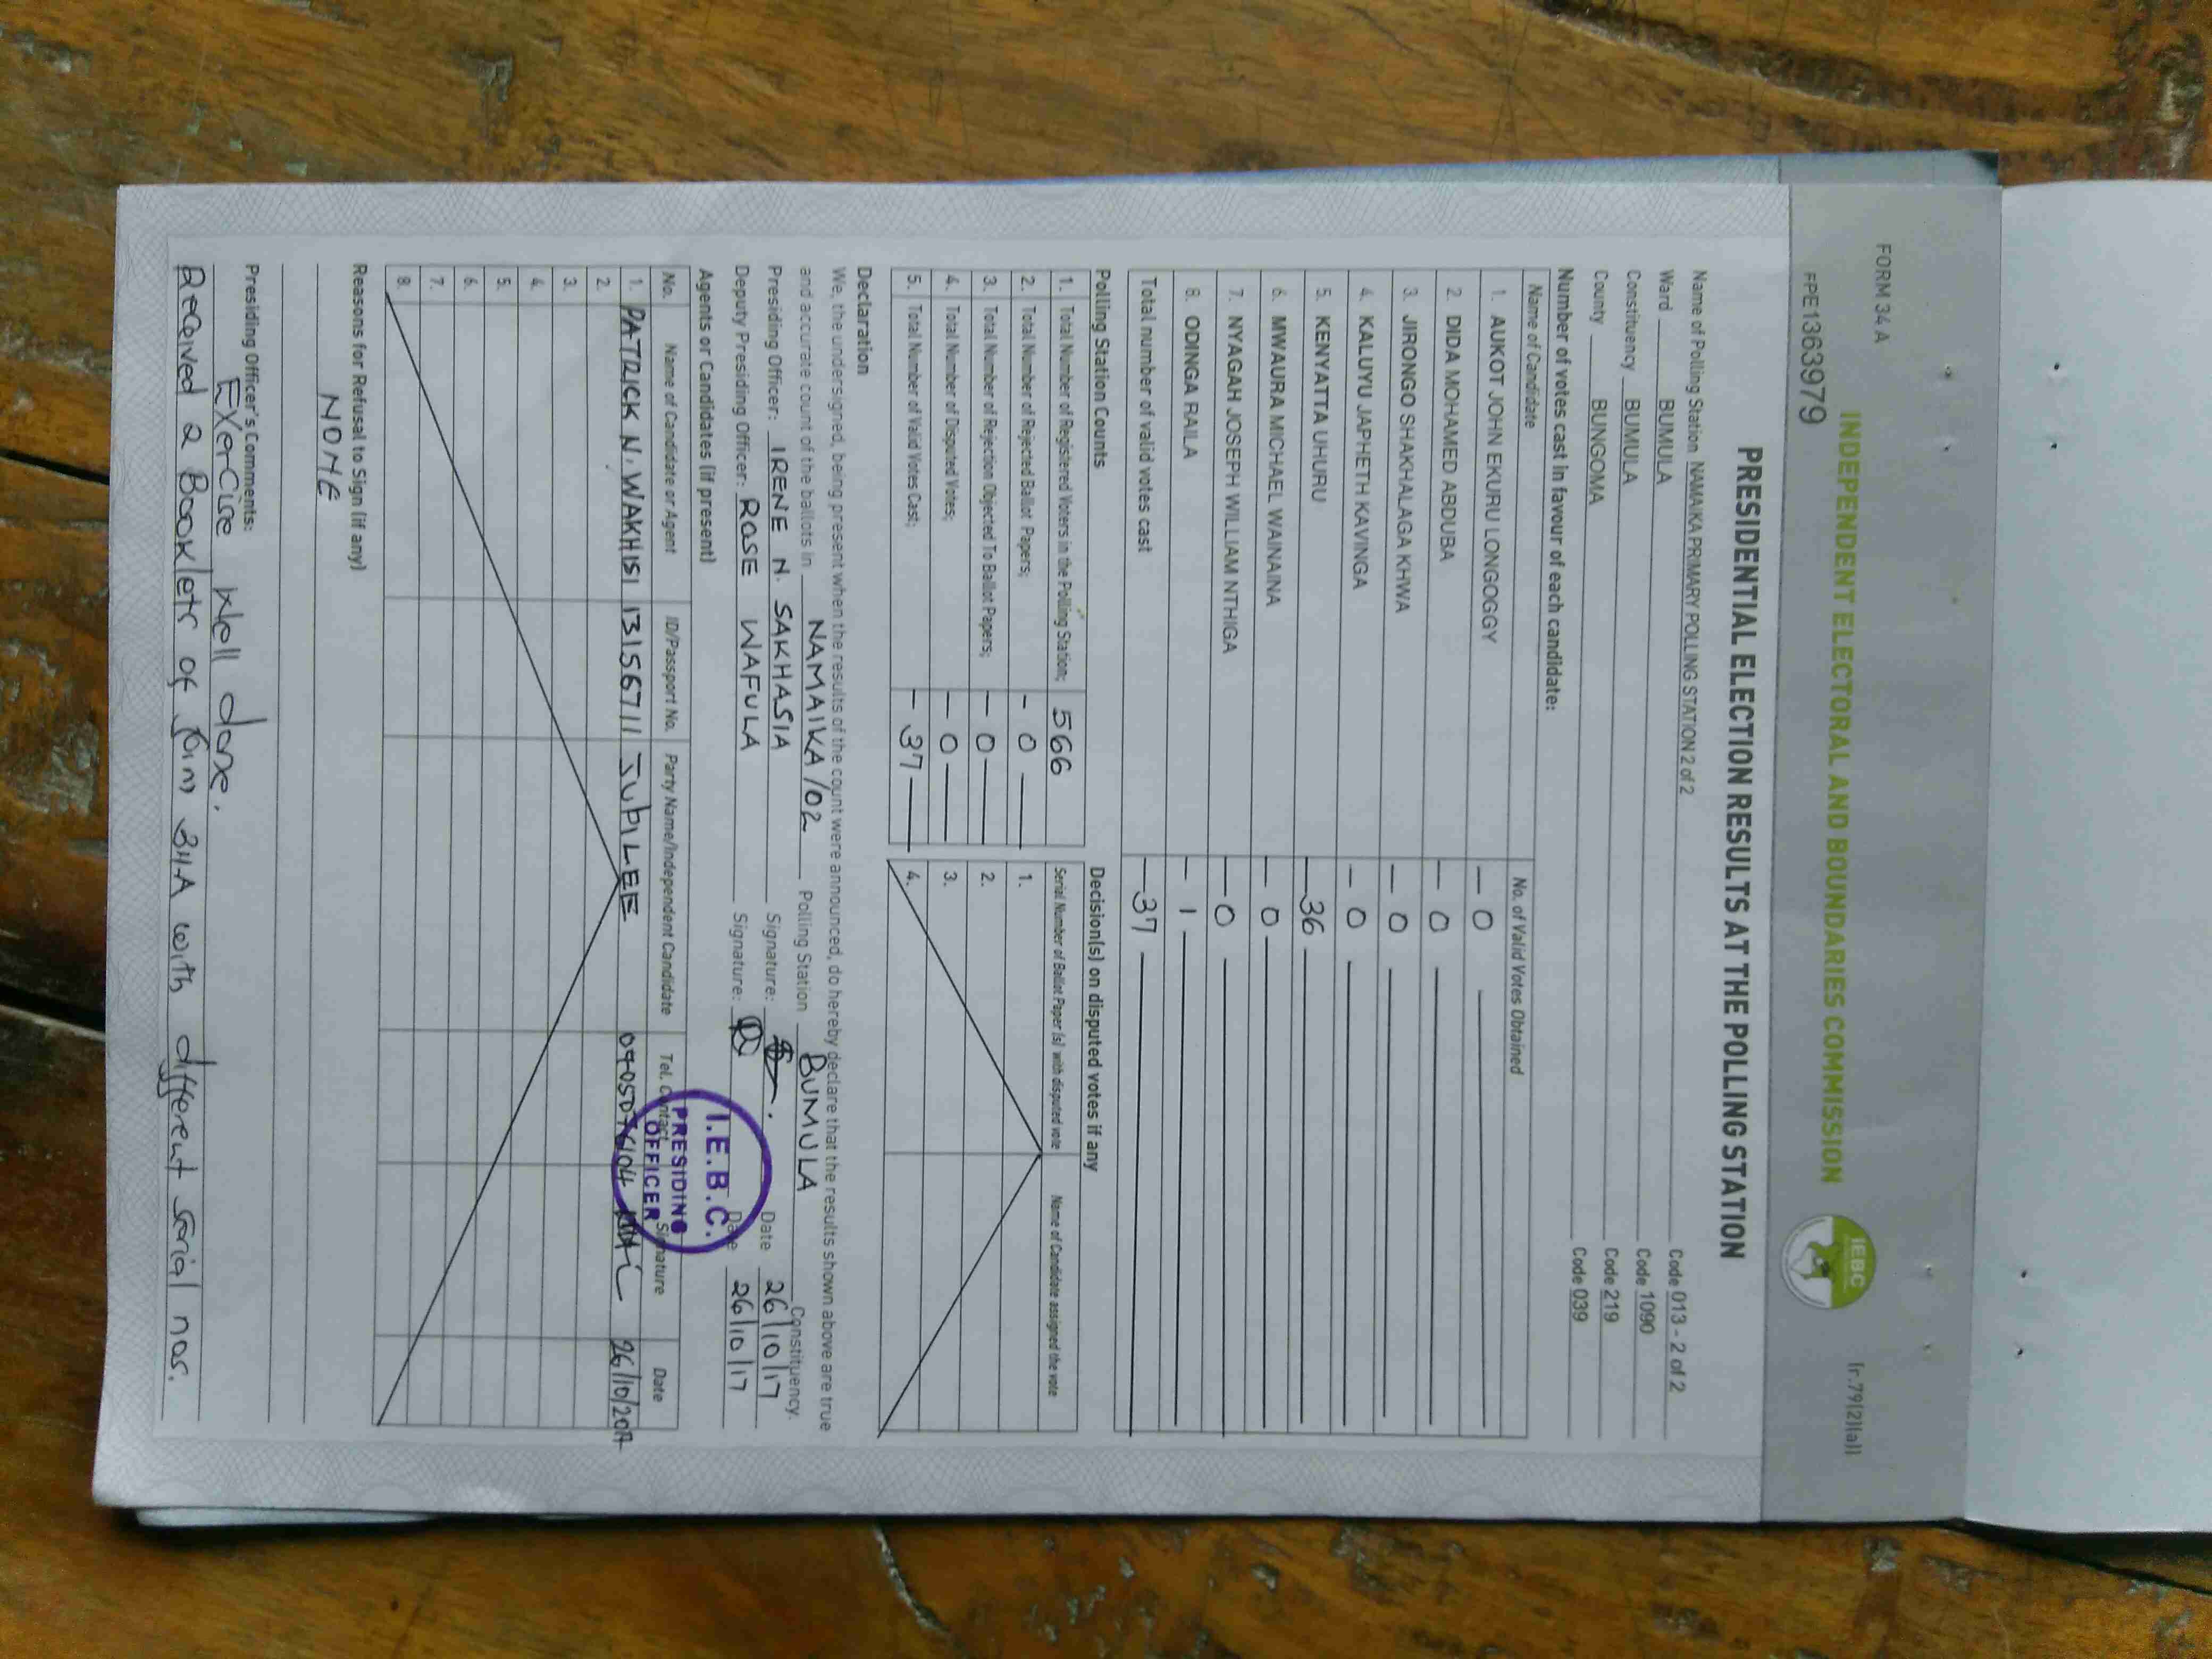 FORM 34A
(r.79(2)(a))
INDEPENDENT ELECTORAL AND BOUNDARIES COMMISSION
IEBC
FPE1363979
PRESIDENTIAL ELECTION RESULTS AT THE POLLING STATION
Name of Polling Station NAMAIKA PRIMARY POLLING STATION 2 of 2 Code 013 - 2 of 2
Ward BUMULA Code 1090
Constituency BUMULA Code 219
County BUNGOMA Code 039
Number of votes cast in favour of each candidate:
Name of Candidate No. of Valid Votes Obtained
1. AUKOT JOHN EKURU LONGOGGY — 0 —
2. DIDA MOHAMED ABDUBA — 0 —
3. JIRONGO SHAKHALAGA KHWA — 0 —
4. KALUYU JAPHETH KAVINGA — 0 —
5. KENYATTA UHURU — 36 —
6. MWAURA MICHAEL WAINAINA — 0 —
7. NYAGAH JOSEPH WILLIAM NTHIGA — 0 —
8. ODINGA RAILA — 1 —
Total number of valid votes cast — 37 —
Polling Station Counts Decision(s) on disputed votes if any
1. Total Number of Registered Voters in the Polling Station; 566 Serial Number of Ballot Paper (s) with disputed vote Name of Candidate assigned the vote
2. Total Number of Rejected Ballot Papers; — 0 — 1.
3. Total Number of Rejection Objected To Ballot Papers; — 0 — 2.
4. Total Number of Disputed Votes; — 0 — 3.
5. Total Number of Valid Votes Cast; — 37 — 4.
Declaration
We, the undersigned, being present when the results of the count were announced, do hereby declare that the results shown above are true
and accurate count of the ballots in NAMAIKA /02 Polling Station BUMULA Constituency.
Presiding Officer: IRENE N. SAKHASIA Signature: Date 26/10/17
Deputy Presiding Officer: ROSE WAFULA Signature: Date 26/10/17
I.E.B.C.
PRESIDING
OFFICER
Agents or Candidates (if present)
No. Name of Candidate or Agent ID/Passport No. Party Name/Independent Candidate Tel. Contact Signature Date
1. PATRICK N. WAKHISI 13156711 JUBILEE 26/10/2017
2.
3.
4.
5.
6.
7.
8.
Reasons for Refusal to Sign (if any)
NONE
Presiding Officer's Comments:
EXerCise Well done.
Received 2 Booklets of form 34A with different serial nos.